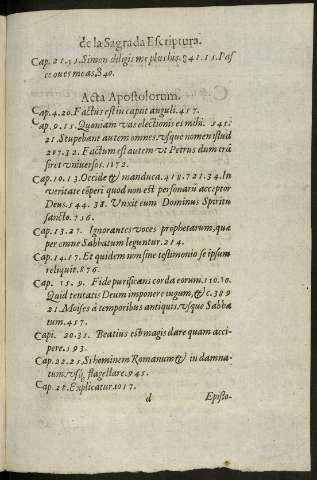 de la Sagrada Escriptura.
Cap. 21.15. Simon diligis me plus his. 841.15. Pas
ce oues meas. 840.
Acta Apostolorum.
Cap. 4.20. Factus est in caput anguli. 417.
Cap. 9.15. Quoniam vas electionis es mihi. 545.
21. Stupebant autem omnes vsque nomen istud
287.32. Factum est autem vt Petrus dum trā
siret vniuersos. 1172.
Cap. 10.13. Occide & manduca. 418.721.34. In
veritate cōperi quod non est personarū acceptor
Deus. 544. 38. Vnxit eum Dominus Spiritu
sancto. 756.
Cap. 13.27. Ignorantes voces prophetarum, quæ
per omne Sabbatum leguntur. 214.
Cap. 14.17. Et quidem non sine testimonio se ipsum
reliquit. 876.
Cap. 15. 9. Fide purificans corda eorum. 110.10.
Quid tentatis Deum imponere iugum, &c. 389
21. Moises à temporibus antiquis vsque Sabba
tum. 417.
Capi. 20.35. Beatius est magis dare quam acci
pere. 193.
Cap. 22.25. Si hominem Romanum & indamna-
tum. vsq; flagellare. 945.
Cap. 28. Explicatur. 1017.
d Episto-